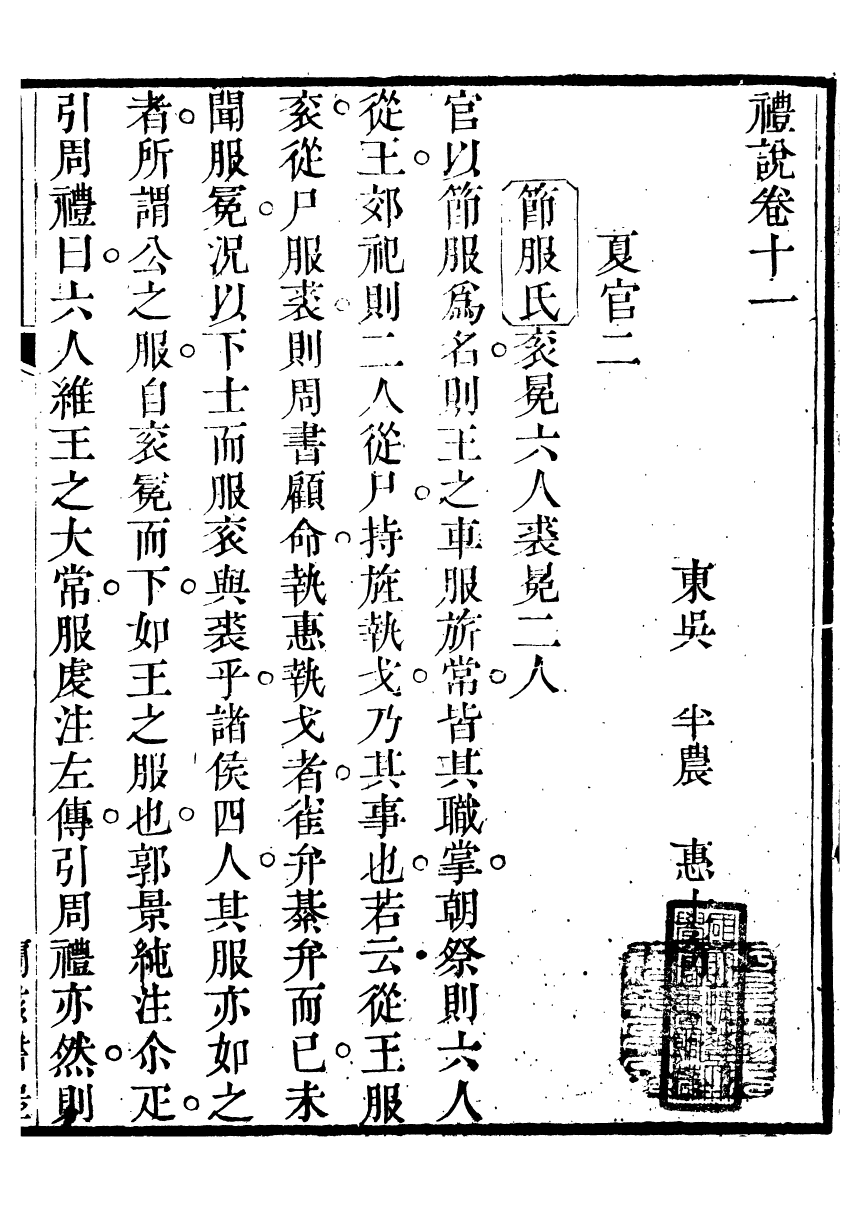 禮說卷十一
東吳　半農　惠士
夏官二
節服氏袞冕六人裘冕二人
官以節服爲名則王之車服旂常皆其職掌朝祭則六人
從王郊祀則二人從尸持旌執戈乃其事也若云從王服
袞從尸服裘則周書顧命執惠執戈者雀弁綦弁而已未
聞服冕况以下士而服袞與裘乎諸侯四人其服亦如之
者所謂公之服自袞冕而下如王之服也郭景純注尒疋
引周禮曰六人維王之大常服虔注左傳引周禮亦然則